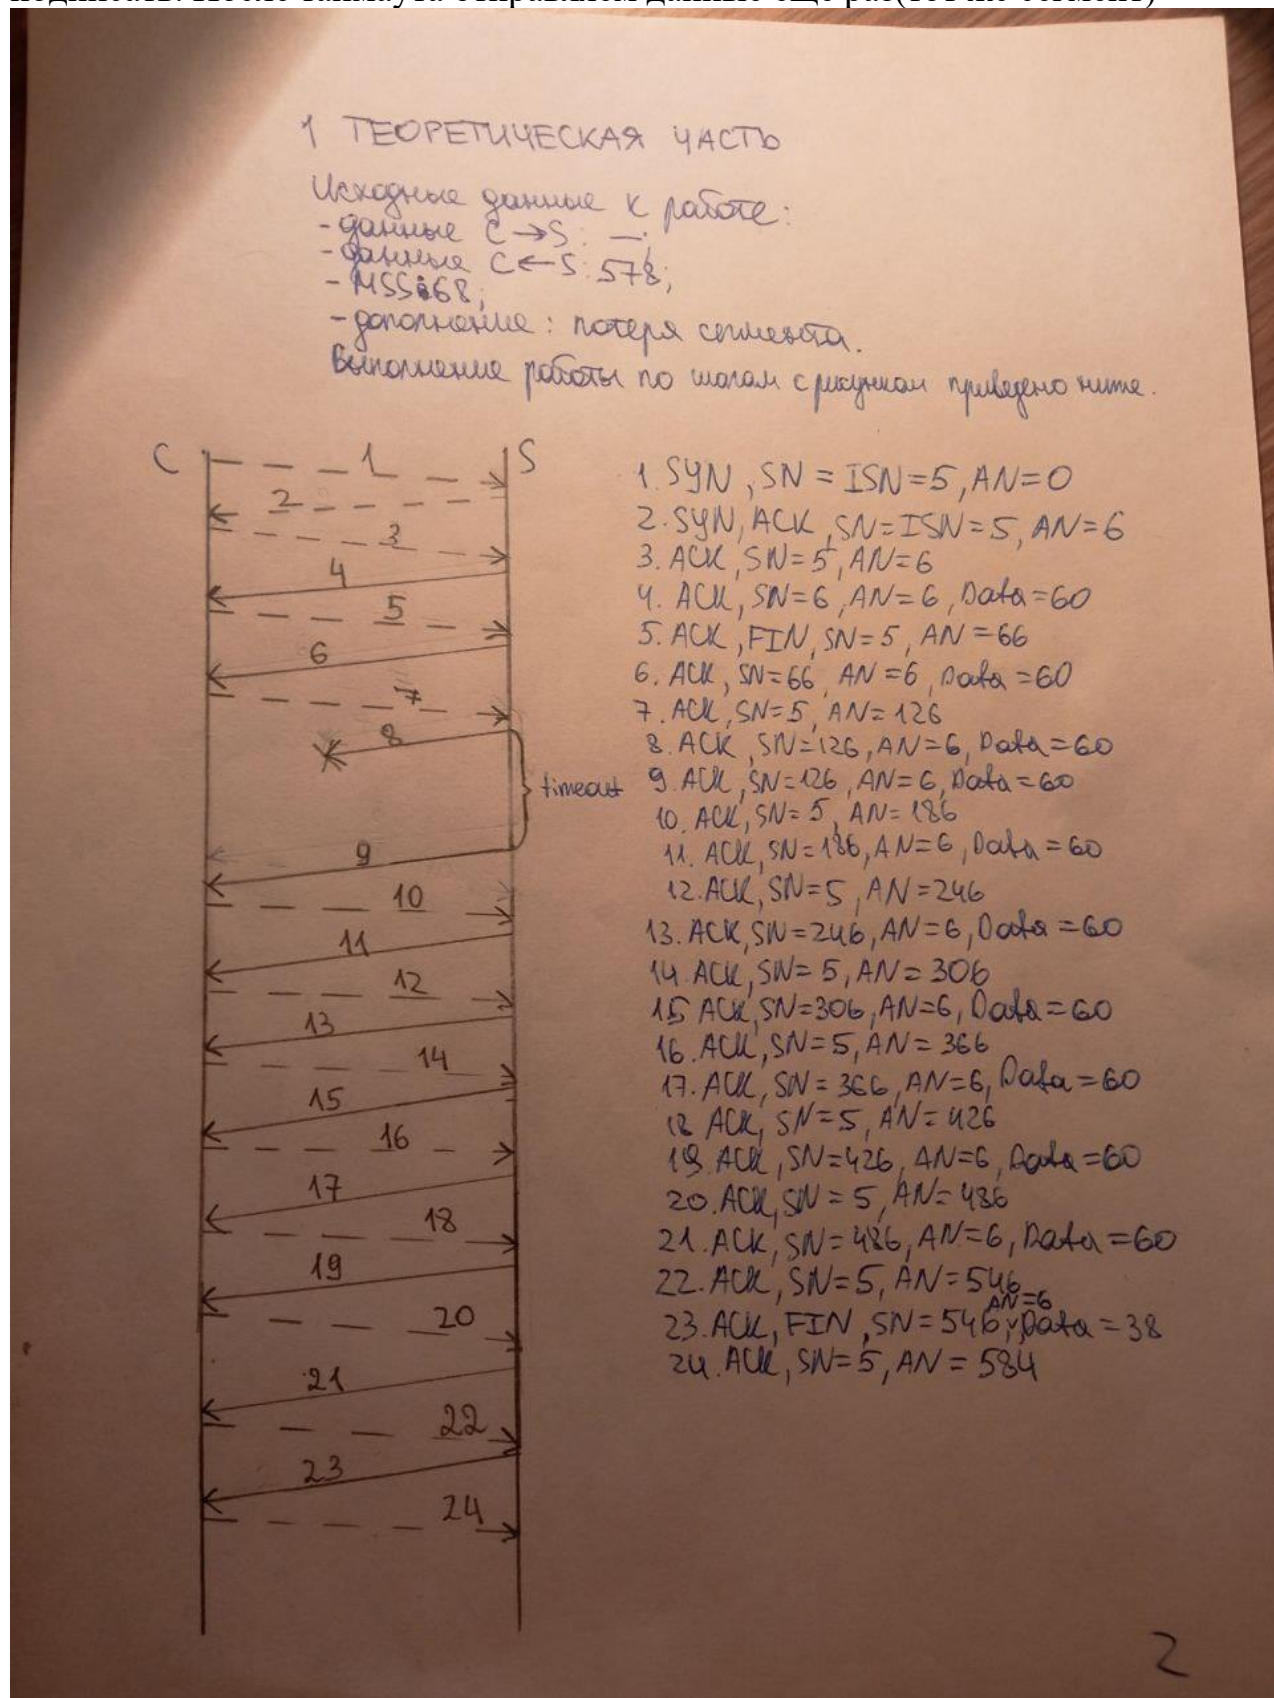 подписать. После таймаута отправляем данные еще раз(тот же сегмент)
1 ТЕОРЕТИЧЕСКАЯ ЧАСТЬ
Исходные данные к работе:
- данные C→S: —;
- данные C←S: 578;
- MSS: 68;
- дополнение: потеря сегмента.
Выполнение работы по шагам с рисунком приведено ниже.
C 1 S
2
3
4
5
6
7
8
timeout
9
10
11
12
13
14
15
16
17
18
19
20
21
22
23
24
1. SYN, SN = ISN=5, AN=0
2. SYN, ACK, SN=ISN=5, AN=6
3. ACK, SN=5, AN=6
4. ACK, SN=6, AN=6, Data=60
5. ACK, FIN, SN=5, AN=66
6. ACK, SN=66, AN=6, Data=60
7. ACK, SN=5, AN=126
8. ACK, SN=126, AN=6, Data=60
9. ACK, SN=126, AN=6, Data=60
10. ACK, SN=5, AN=186
11. ACK, SN=186, AN=6, Data=60
12. ACK, SN=5, AN=246
13. ACK, SN=246, AN=6, Data=60
14. ACK, SN=5, AN=306
15 ACK, SN=306, AN=6, Data=60
16. ACK, SN=5, AN=366
17. ACK, SN=366, AN=6, Data=60
18 ACK, SN=5, AN=426
19. ACK, SN=426, AN=6, Data=60
20. ACK, SN=5, AN=486
21. ACK, SN=486, AN=6, Data=60
22. ACK, SN=5, AN=546
23. ACK, FIN, SN=546, AN=6, Data=38
24. ACK, SN=5, AN=584
2